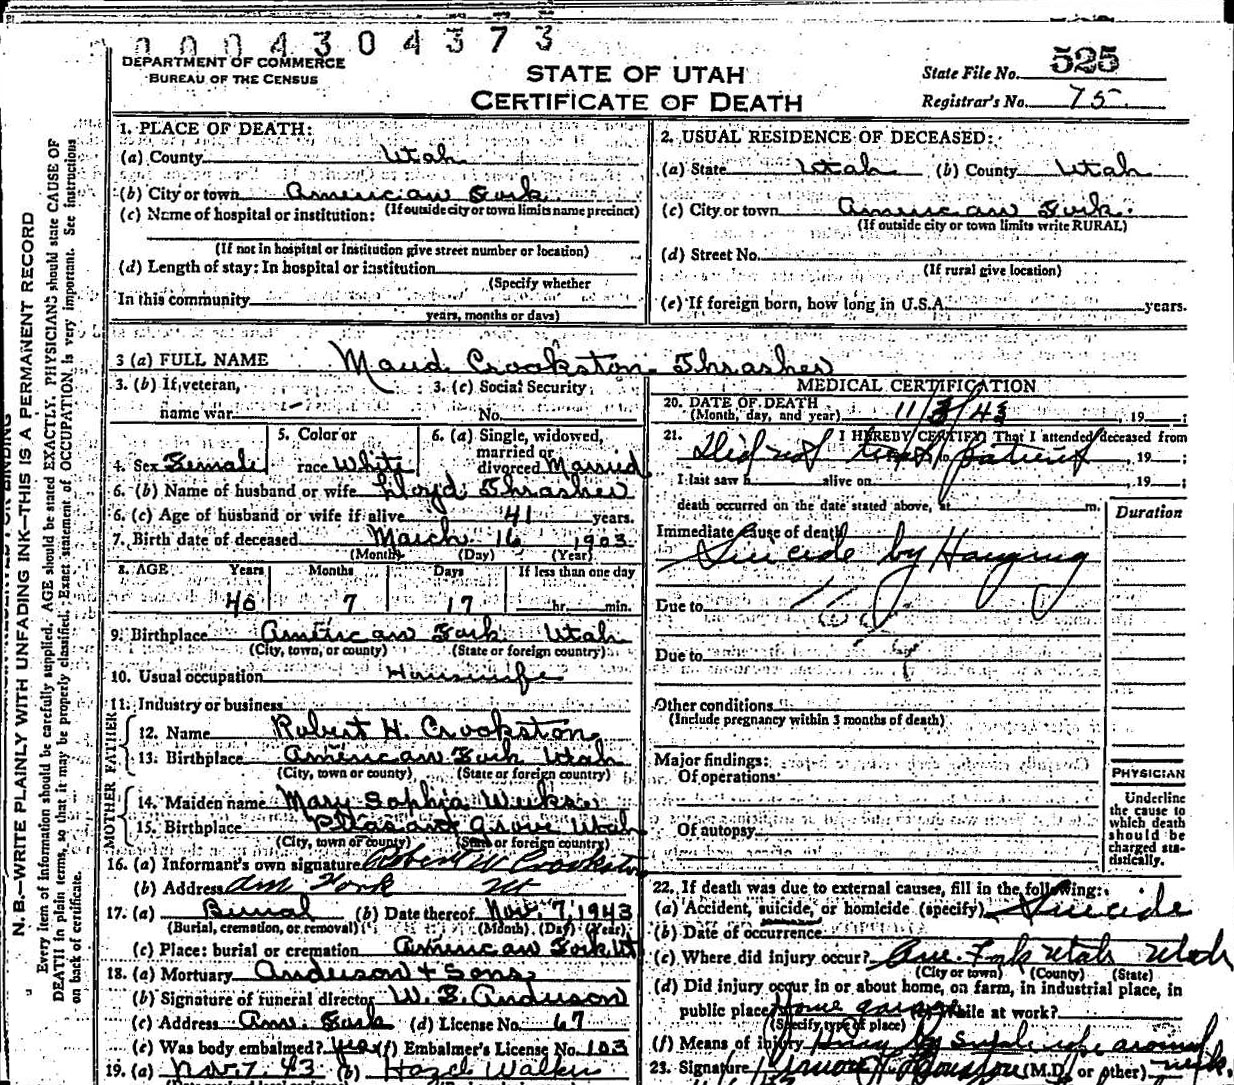 0004304373
DEPARTMENT OF COMMERCE
BUREAU OF THE CENSUS
STATE OF UTAH
CERTIFICATE OF DEATH
State File No. 525
Registrar's No. 75
N. B.—WRITE PLAINLY WITH UNFADING INK—THIS IS A PERMANENT RECORD
Every item of information should be carefully supplied. AGE should be stated EXACTLY. PHYSICIANS should state CAUSE OF
DEATH in plain terms, so that it may be properly classified. Exact statement of OCCUPATION is very important. See instructions
on back of certificate.
1. PLACE OF DEATH:
(a) County Utah
(b) City or town American Fork
(If outside city or town limits name precinct)
(c) Name of hospital or institution:
(If not in hospital or institution give street number or location)
(d) Length of stay: In hospital or institution
(Specify whether
In this community
years, months or days)
2. USUAL RESIDENCE OF DECEASED:
(a) State Utah (b) County Utah
(c) City or town American Fork
(If outside city or town limits write RURAL)
(d) Street No.
(If rural give location)
(e) If foreign born, how long in U.S.A. years.
3 (a) FULL NAME Maud Crookston Thrasher
3. (b) If veteran,
name war -
3. (c) Social Security
No.
4. Sex Female
5. Color or
race White
6. (a) Single, widowed,
married or
divorced Married
6. (b) Name of husband or wife Lloyd Thrasher
6. (c) Age of husband or wife if alive 41 years.
7. Birth date of deceased March 16 1903
(Month) (Day) (Year)
8. AGE Years Months Days If less than one day
40 7 17 hr. min.
9. Birthplace American Fork Utah
(City, town, or county) (State or foreign country)
10. Usual occupation Housewife
11. Industry or business
FATHER
12. Name Robert H. Crookston
13. Birthplace American Fork Utah
(City, town or county) (State or foreign country)
MOTHER
14. Maiden name Mary Sophia Weeks
15. Birthplace Pleasant Grove Utah
(City, town or county) (State or foreign country)
16. (a) Informant's own signature Robert W Crookston
(b) Address Am Fork Ut
17. (a) Burial (b) Date thereof Nov. 7, 1943
(Burial, cremation, or removal) (Month) (Day) (Year)
(c) Place: burial or cremation American Fork Ut
18. (a) Mortuary Anderson + Sons
(b) Signature of funeral director W. E. Anderson
(c) Address Am. Fork (d) License No. 67
(e) Was body embalmed? yes (f) Embalmer's License No. 103
19. (a) Nov 7 43 (b) Hazel Walker
MEDICAL CERTIFICATION
20. DATE OF DEATH
(Month, day, and year) 11/3/43, 19 ;
21. I HEREBY CERTIFY, That I attended deceased from
Did not treat patient, 19 ;
I last saw h alive on , 19 ;
death occurred on the date stated above, at m.
Duration
Immediate cause of death
Suicide by Hanging
Due to
Due to
Other conditions
(Include pregnancy within 3 months of death)
Major findings:
Of operations
Of autopsy
PHYSICIAN
Underline
the cause to
which death
should be
charged sta-
tistically.
22. If death was due to external causes, fill in the following:
(a) Accident, suicide, or homicide (specify) Suicide
(b) Date of occurrence
(c) Where did injury occur? Am. Fork Utah Utah
(City or town) (County) (State)
(d) Did injury occur in or about home, on farm, in industrial place, in
public place? Home garage While at work?
(Specify type of place)
(f) Means of injury by rope around neck
23. Signature (M.D. or other)